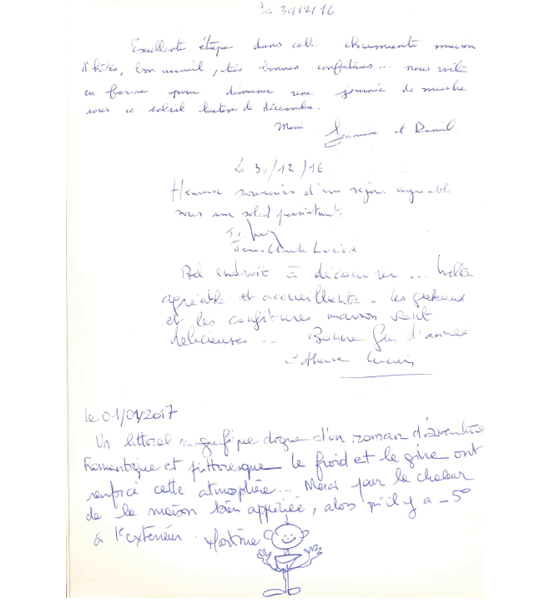 le 30/12/16
Excellente étape dans cette charmante maison
d'hôtes, bon accueil, très bonnes confitures... nous voilà
en forme pour démarrer une journée de marche
sous ce soleil breton de décembre.
Merci Jeannine et Daniel.
Le 30/12/16
Heureux souvenirs d'un séjour agréable
sous un soleil persistant.
Jean-Claude
Bel endroit à découvrir...
agréable et accueillante - les gateaux
et les confitures maison sont
délicieuses... Bonne fin d'année
le 01/01/2017
Un littoral magnifique digne d'un roman d'aventure
Romantique et pittoresque le froid et le givre ont
renforcé cette atmosphère... Merci pour la chaleur
de la maison bien appréciée, alors qu'il y a -5°
à l'extérieur. Martine